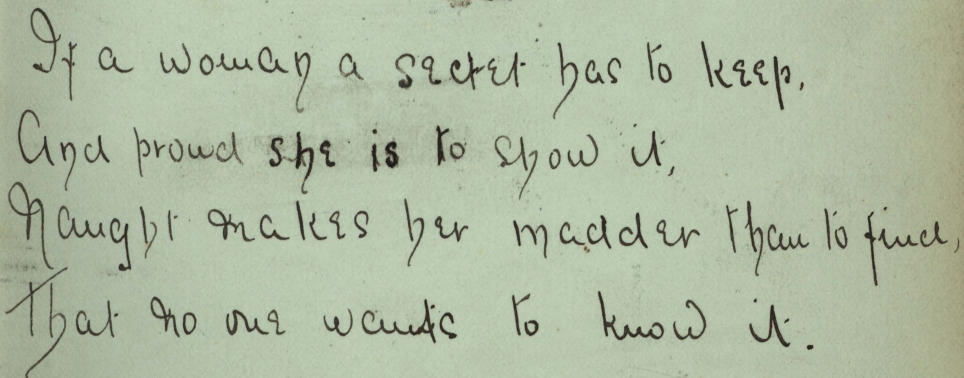 If a woman a secret has to keep,
And proud she is to show it,
Naught makes her madder than to find,
That no one wants to know it.